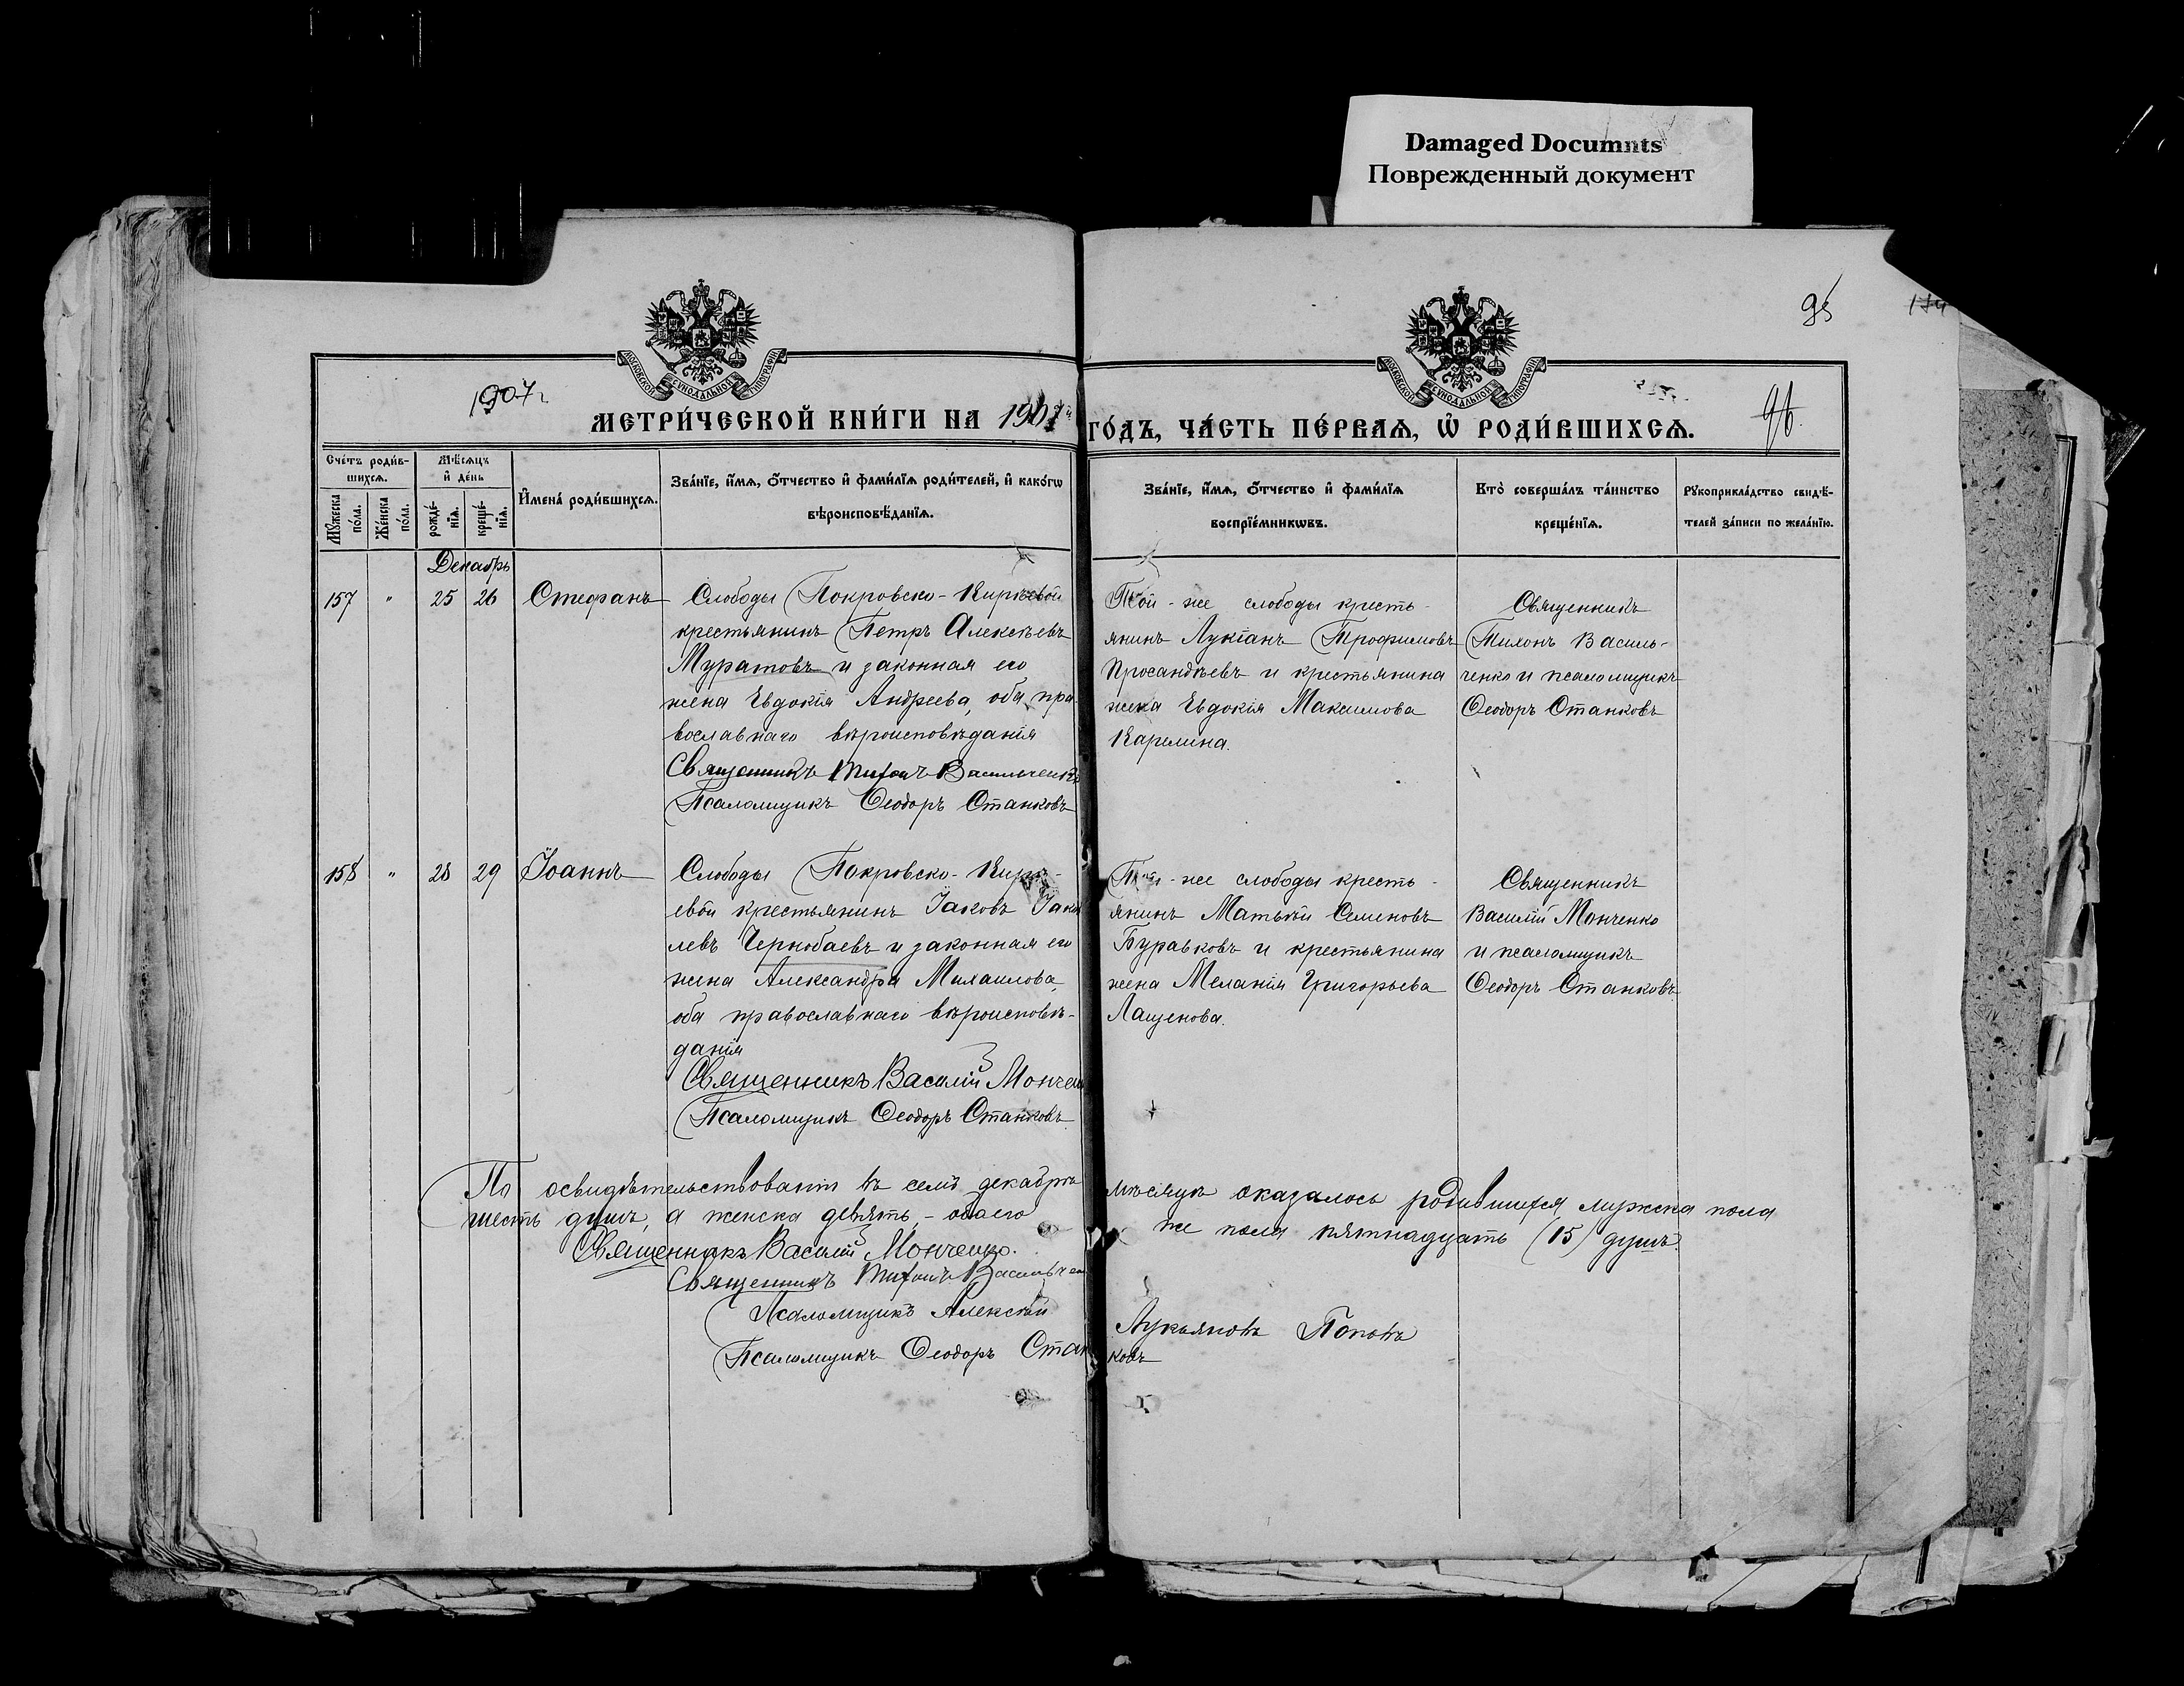 Damaged Documnts
Поврежденный документ
95
МОСКОВСКОЙ СѴНОДАЛЬНОЙ ТИПОГРАФІИ
МОСКОВСКОЙ СѴНОДАЛЬНОЙ ТИПОГРАФІИ
1907 г.
МЕТРИ́ЧЕСКОЙ КНИ́ГИ НА 1907й ГО́ДЪ, ЧА́СТЬ ПЕ́РВАѦ, Ѡ҆ РОДИ́ВШИХСѦ.
96.
Сче́тъ роди́в-
шихсѧ.
Мѣ́сѧцъ
и҆ де́нь
Мꙋ́жеска
по́ла.
Же́нска
по́ла.
рожде́-
нїѧ.
креще́-
нїѧ.
И҆мена̀ роди́вшихсѧ.
Зва́нїе, и҆́мѧ, ѻ҆́тчество и҆ фами́лїѧ роди́телей, и҆ како́гѡ
вѣроисповѣ́данїѧ.
Зва́нїе, и҆́мѧ, ѻ҆́тчество и҆ фами́лїѧ
воспрїе́мникѡвъ.
Кто̀ соверша́лъ та́инство
креще́нїѧ.
Рꙋкоприкла́дство свидѣ́-
телей за́писи по жела́нїю.
Декабрь
157 " 25 26 Стефанъ
Слободы Покровско-Киреевой
крестьянинъ Петръ Алексѣевъ
Муратовъ и законная его
жена Евдокія Андреева, оба пра
вославнаго вѣроисповѣданія
Священникъ Тихонъ Васильченко
Псаломщикъ Ѳеодоръ Станковъ
Той-же слободы кресть-
янинъ Лукіанъ Трофимовъ
Просандѣевъ и крестьянина
жена Евдокія Максимова
Карелина.
Священникъ
Тихонъ Василь-
ченко и псаломщикъ
Ѳеодоръ Станковъ
158 " 28 29 Іоаннъ
Слободы Покровско-Кире-
евой крестьянинъ Іаковъ Іаков
левъ Чернобаевъ и законная его
жена Александра Михаилова,
оба православнаго вѣроисповѣ-
данія
Священникъ Василій Монченко
Псаломщикъ Ѳеодоръ Станковъ.
Той-же слободы кресть-
янинъ Матѳѣй Семеновъ
Буравковъ и крестьянина
жена Меланія Григорьева
Лащенова.
Священникъ
Василій Монченко
и псаломщикъ
Ѳеодоръ Станковъ
По освидѣтельствованіи въ семъ декабрѣ мѣсяцѣ оказалось родившихся мужска пола
шесть душъ, а женска девять, - обаего же пола пятнадцать (15) душъ.
Священникъ Василій Монченко.
Священникъ Тихонъ Васильченко
Псаломщикъ Алексѣй Лукьяновъ Поповъ
Псаломщикъ Ѳеодоръ Станковъ